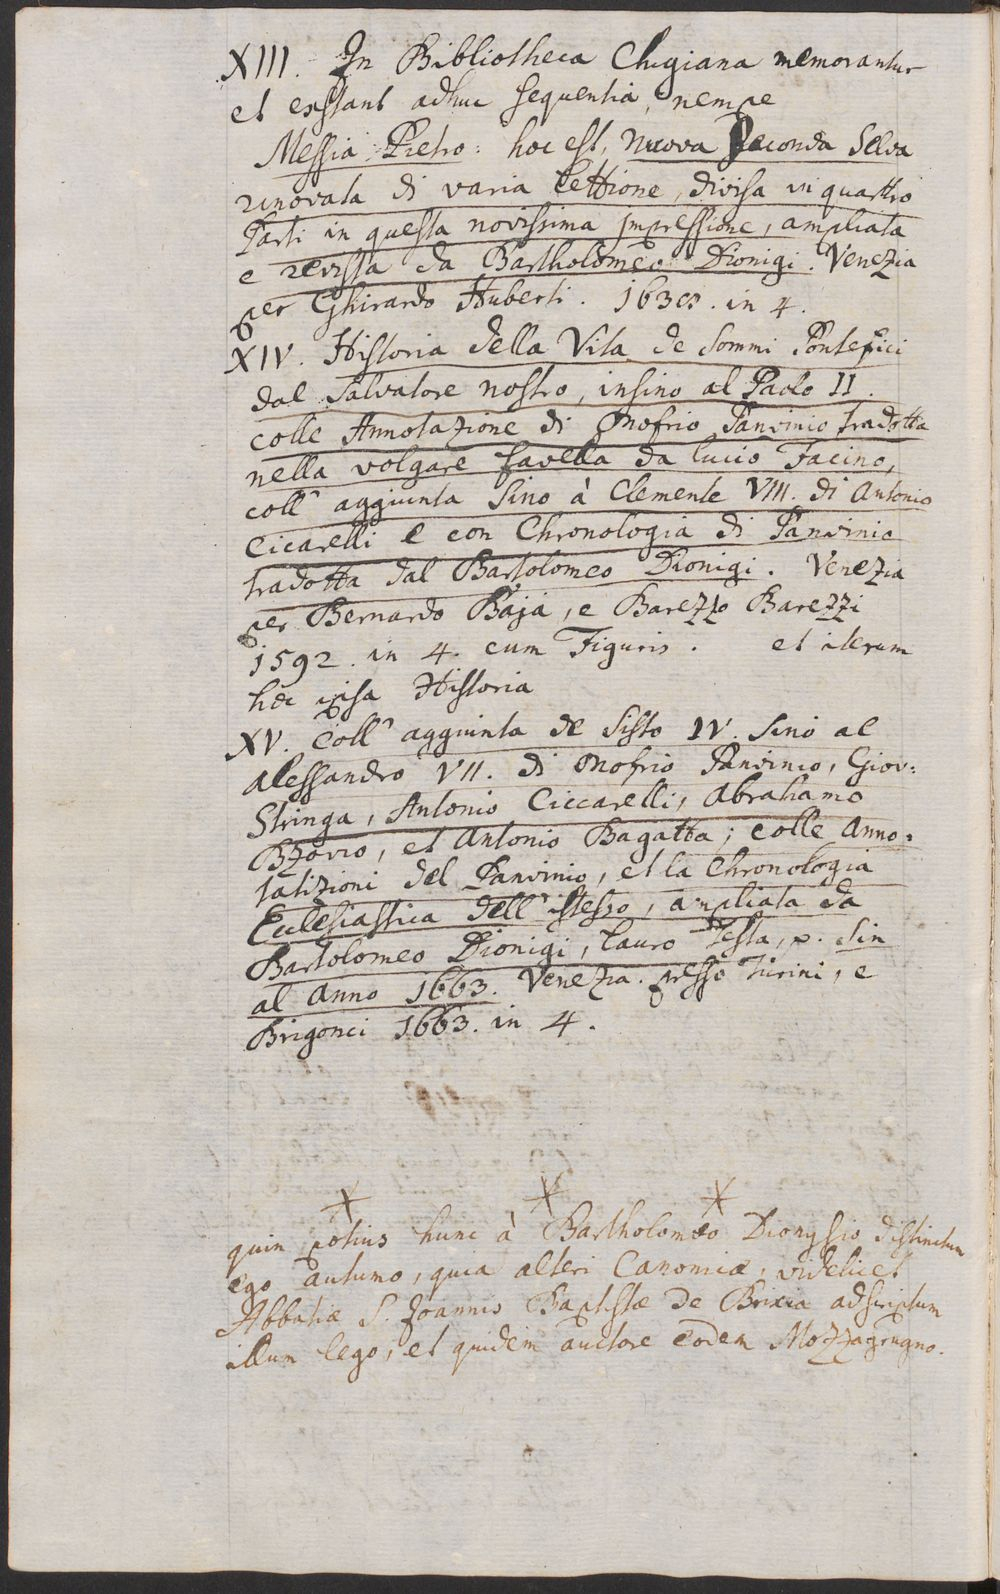 XIII. In Bibliotheca Chigiana memorantur
et exstant adhuc sequentia, nempe
Messia Pietro: hoc est, Nuova Seconda Selva
rinovata di varia Lettione, divisa in quattro
Parti in questa novissima Impressione, ampliata
e revista da Bartholomeo Dionigi. Venezia
per Ghirardo Huberti. in 4.
XIV. Historia della Vita de Sommi Pontefici
dal Salvatore nostro, insino al Paolo II.
colle Annotazione di Onofrio Panvinio tradotta
nella volgare favella da Lucio Facino,
coll' aggiunta sino à Clemente VIII. di Antonio
Cicarelli e con Chronologia di Panvinio
tradotta dal Bartolomeo Dionigi. Venezia
per Bernardo Baja, e Barezzo Barezzi
1592. in 4. cum Figuris. et iterum
hæc ipsa Historia
XV. Coll' aggiunta de Sisto IV. sino al
Alessandro VII. di Onofrio Panvinio, Giov:
Stringa, Antonio Ciccarelli, Abrahamo
Bzovio, et Antonio Bagatta; colle Anno=
tatizioni del Panvinio, et la Chronologia
Ecclesiastica dell' istesso, ampliata da
Bartolomeo Dionigi, Lauro Testa, p. sin
al Anno 1663. Venezia. presso Turini, e
Brigonci 1663. in 4.
quin potius hunc à Bartholomeo Dionysio distinctum
ego autumo, quia alteri Canoniæ, videlicet
Abbatiæ S. Joannis Baptistæ de Brixia adscriptum
illum lego, et quidem auctore eodem Mozzagrugno.